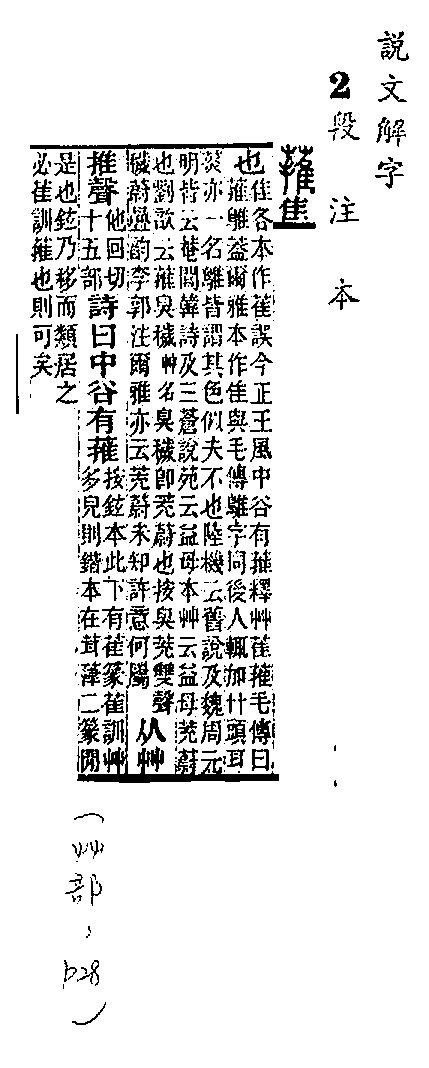 說文解字
2段注本
蓷隹
也隹各本作萑誤今正王風中谷有蓷釋艸萑蓷毛傳曰
蓷鵻葢爾雅本作隹與毛傳鵻字同後人輒加艸頭耳
菼亦一名鵻皆謂其色似夫不也陸機云舊說及魏周元
明皆云菴閭韓詩及三蒼說苑云益母本艸云益母茺蔚
也劉歆云蓷臭穢艸名臭穢卽茺蔚也按臭茺雙聲
穢蔚曡韵李郭注爾雅亦云茺蔚未知許意何屬从艸
推聲他回切十五部詩曰中谷有蓷按鉉本此下有萑篆萑訓艸
多皃則鍇本在茸葏二篆閒
是也鉉乃移而類居之
必萑訓蓷也則可矣
（艸部，p28）